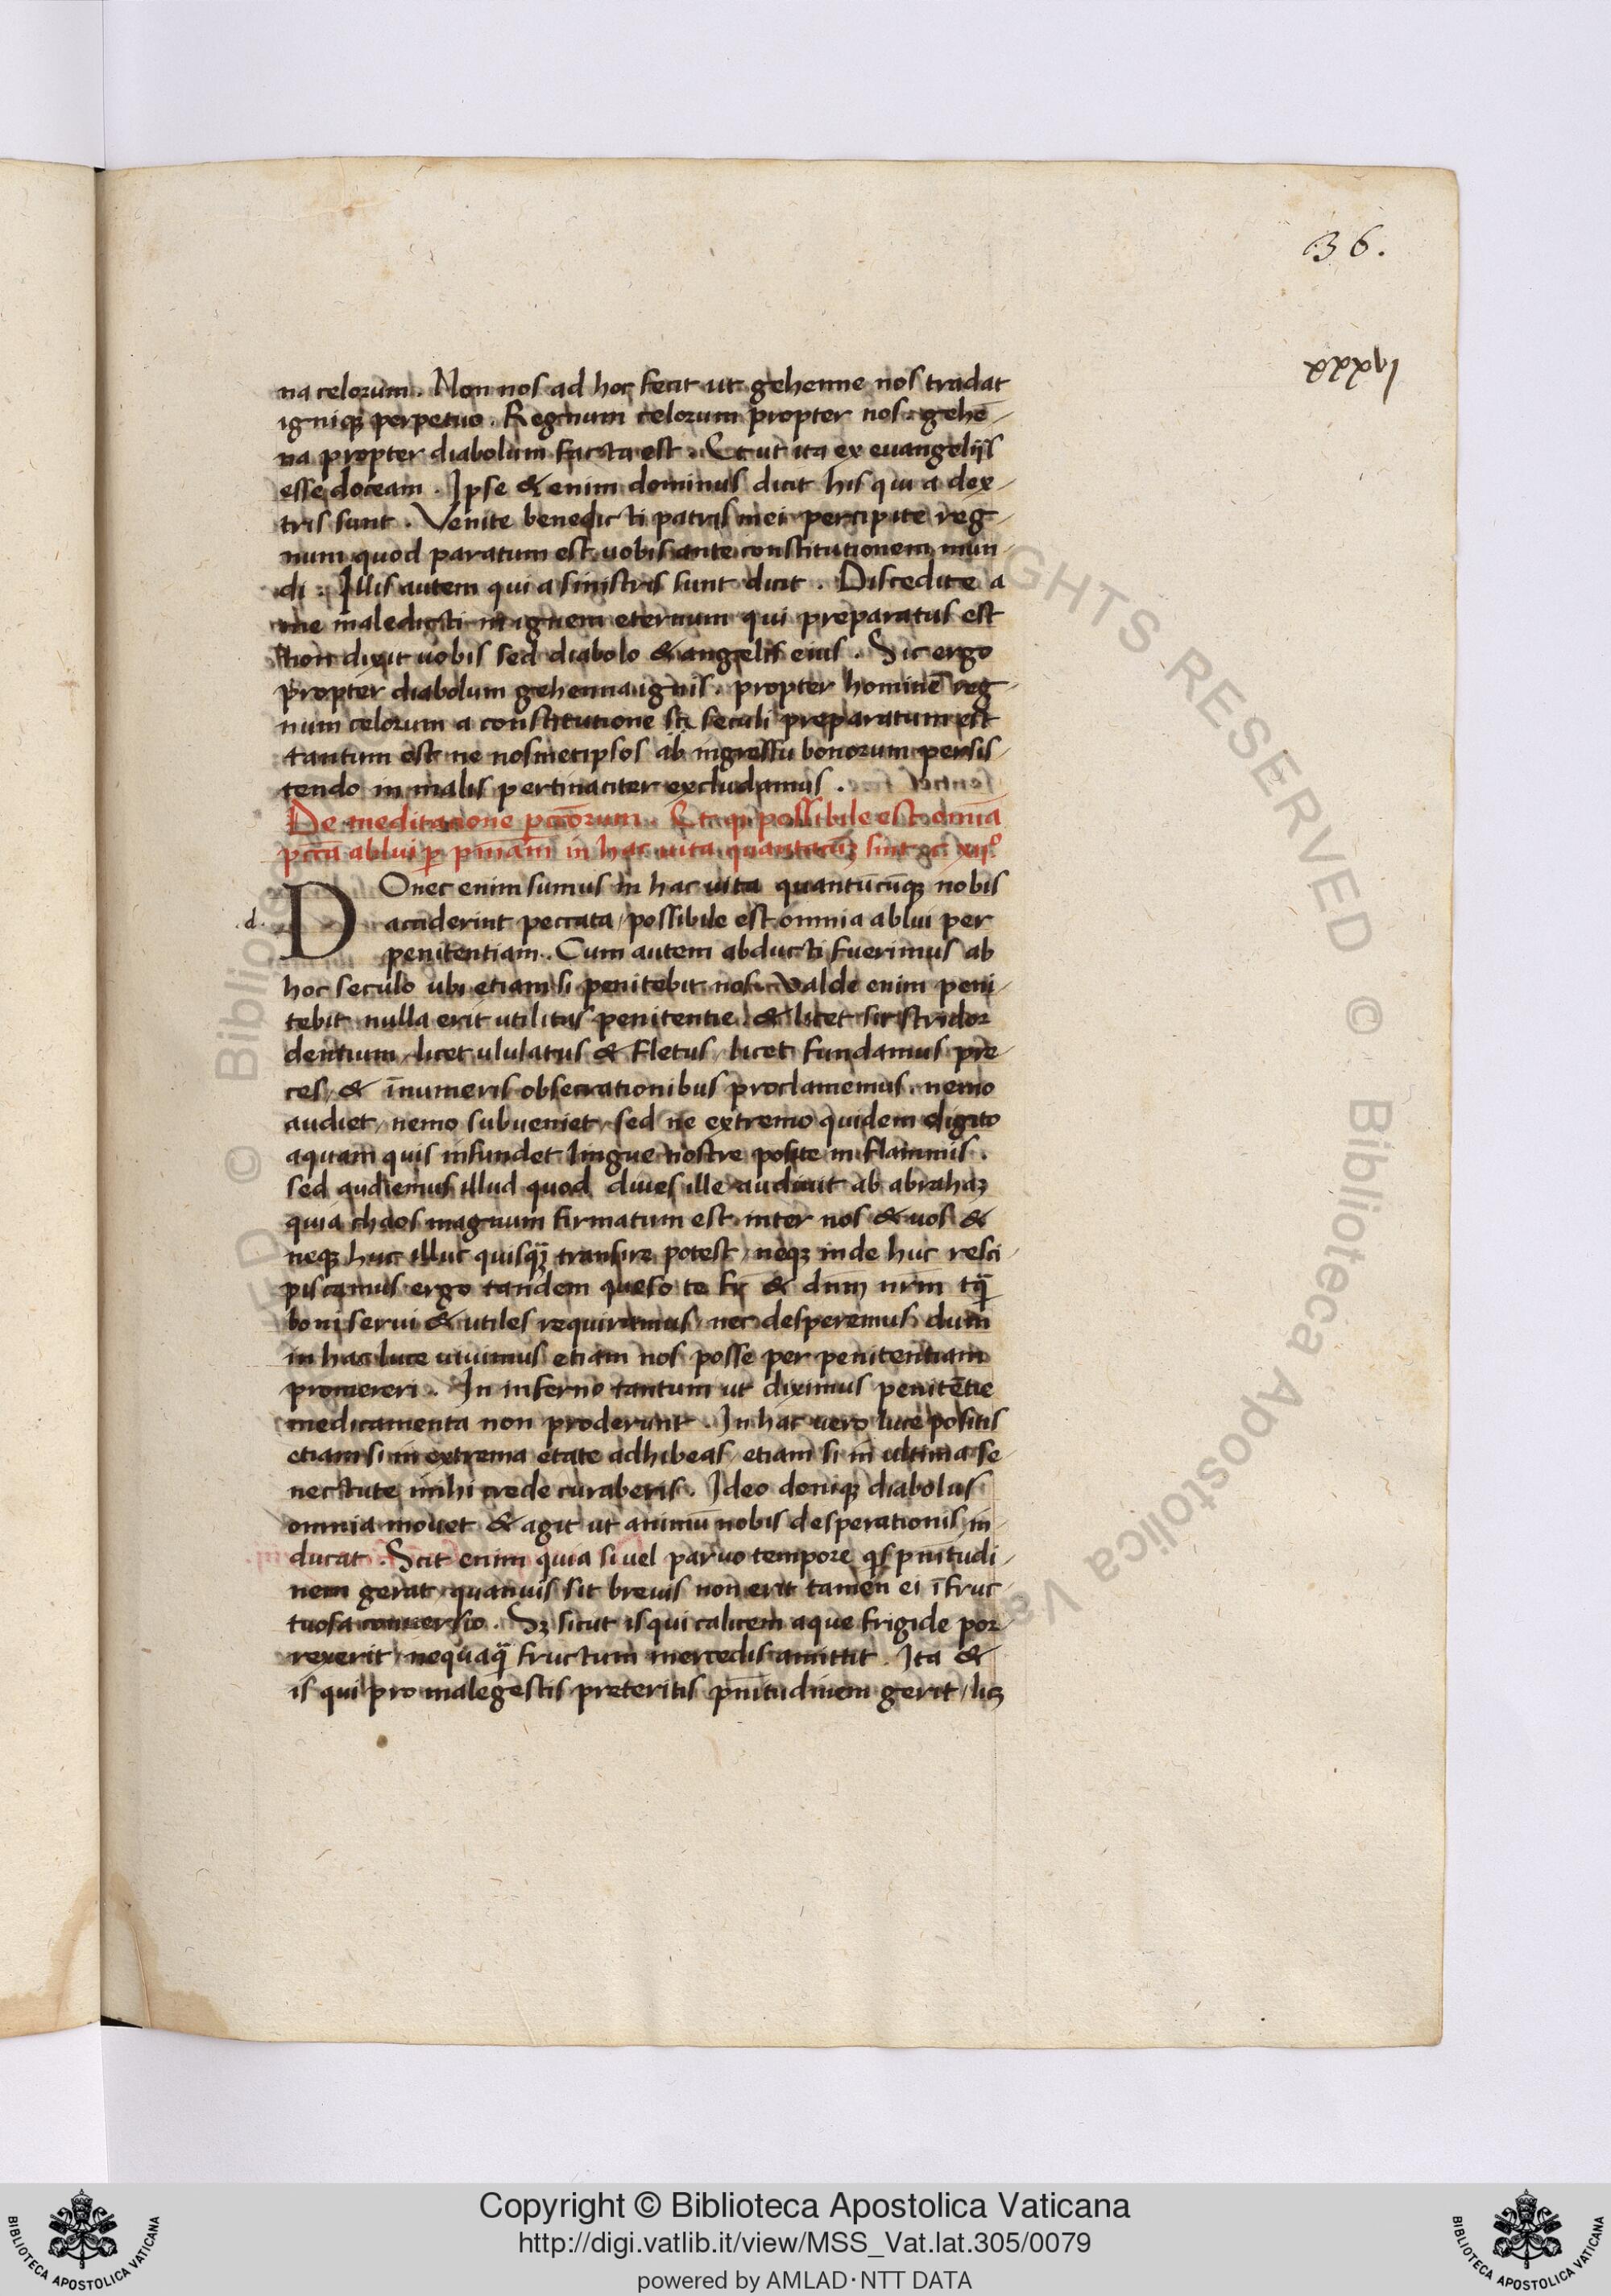 36.
na celorum. Non nos ad hoc fecit ut gehenne nos tradat
igniqꝫ perpetuo. Regnum celorum propter nos. gehē-
na propter diabolum facta est. Et ut ita ex euangelijs
esse doceam. Ipse & enim dominus dicit his qui a dex-
tris sunt. Venite benedicti patris mei percipite reg-
num quod paratum est uobis ante constitutionem mun-
di. Illis autem qui a sinistris sunt dicit. Discedite a
me maledicti in ignem eternum qui preparatus est
Non dixit uobis sed diabolo & angelis eius. Sic ergo
propter diabolum gehenna ignis. propter hominē reg-
num celorum a constitutione seculi preparatum est
tantum est ne nosmetipsos ab ingressu bonorum persis-
tendo in malis pertinaciter excludamus.
De meditacione pctōrum. Et qꝫ possibile est omnia
pctā ablui ꝑ pniām in hac uita quantacūqꝫ sint
.d.
DOnec enim sumus in hac uita quantūcūqꝫ nobis
acciderint peccata, possibile est omnia ablui per
penitentiam. Cum autem abducti fuerimus ab
hoc seculo ubi etiam si penitebit nos. Valde enim peni-
tebit nulla erit utilitas penitentie. & licet sit stridor
dentium, licet ululatus & fletus, licet fundamus pre-
ces, & īnumeris obsecrationibus proclamemus. nemo
audiet, nemo subueniet, sed ne extremo quidem digito
aquam quis infundet lingue nostre posite in flammis.
sed audiemus illud quod diues ille audiuit ab abrahaꝫ
quia chaos magnum firmatum est inter nos & uos &
neqꝫ huc illuc quisqꝫ transire potest, neqꝫ inde huc resci-
piscamus ergo tandem queso te fr̄ & dn̄m nr̄m tq̄
boni serui & utiles requiramus, nec desperemus dum
in hac luce uiuimus etiam nos posse per penitentiam
promereri. In inferno tantum ut diximus penitētie
medicamenta non proderunt. In hac uero luce positis
etiam si in extrema etate adhibeas, etiam si in ultima se-
nectute mihi crede curaberis. Ideo deniqꝫ diabolus
omnia mouet & agit ut animū nobis desperationis in-
ducat. Scit enim quia si uel paruo tempore qs pn̄itudi-
nem gerat, quanuis sit breuis non erit tamen ei īfruc-
tuosa conuersio. Sꝫ sicut is qui calicem aque frigide por-
rexerit, nequaq̄ fructum mercedis amittit. Ita &
is qui pro male gestis preteritis pn̄itudinem gerit, licꝫ
RIGHTS RESERVED © Biblioteca Apostolica Va
ED © Biblio
Copyright © Biblioteca Apostolica Vaticana
http://digi.vatlib.it/view/MSS_Vat.lat.305/0079
powered by AMLAD·NTT DATA
BIBLIOTECA APOSTOLICA VATICANA
BIBLIOTECA APOSTOLICA VATICANA